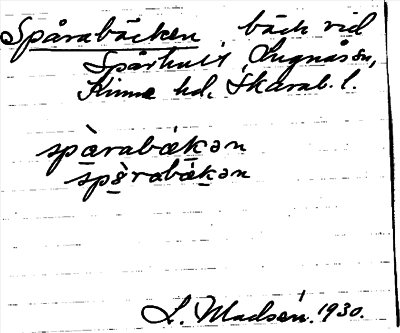 Spårabäcken bäck vid
Spårhult Lugnås sn,
Kinne hd. Skarab. l.
spàrabákən
spàrabákən
L. Madsén. 1930.